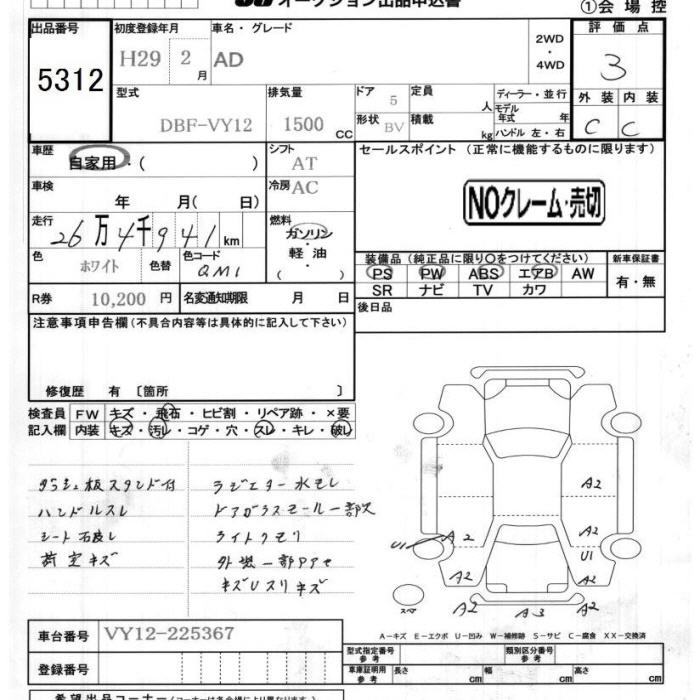 オークション出品申込書
①会場控
出品番号
5312
初度登録年月
H29 2月
車名・グレード
AD
2WD
・
4WD
評価点
3
型式
DBF-VY12
排気量
1500 CC
ドア 5
形状 BV
定員 人
積載 kg
ディーラー・並行
モデル年式 年
ハンドル 左・右
外装 内装
C C
車歴
自家用・( )
シフト
AT
セールスポイント (正常に機能するものに限ります)
NOクレーム・売切
車検
年 月( 日)
冷房 AC
走行
26万4千941km
燃料
ガソリン
・
軽油
( )
色
ホワイト
色替
色コード
QM1
装備品 (純正品に限り〇をつけてください)
PS PW ABS エアB AW
SR ナビ TV カワ
新車保証書
有・無
R券 10,200 円
名変通知期限 月 日
後日品
注意事項申告欄 (不具合内容等は具体的に記入して下さい)
修復歴 有 〔箇所 〕
検査員記入欄
FW キズ・飛石・ヒビ割・リペア跡・×要
内装 キズ・汚レ・コゲ・穴・スレ・キレ・破レ
ラジエター水モレ
ハンドルスレ
ドアガラスモール一部欠
ライトクモリ
荷室キズ
A2
A2
U1
A2
U1
A2
A2
A2
A3
A2
スペア
A-キズ E-エクボ U-凹み W-補修跡 S-サビ C-腐食 XX-交換済
車台番号 VY12-225367
登録番号
型式指定番号
参考
類別区分番号
参考
車庫証明用
参考
長さ cm 幅 cm 高さ cm
希望出品コーナー